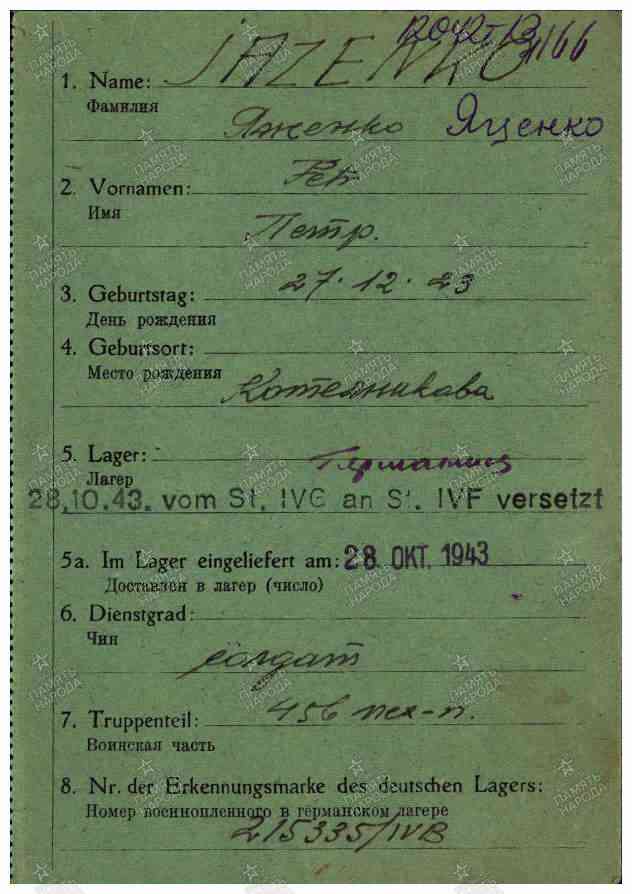 12042т/3 1166
1. Name: JAZENKO
Фамилия
Яженко Яценко
2. Vornamen: Petr
Имя
Петр.
3. Geburtstag: 27.12.23
День рождения
4. Geburtsort:
Место рождения
Котелникова
5. Lager: Германия
Лагер
28.10.43. vom St. IVG an St. IVF versetzt
5a. Im Lager eingeliefert am: 28. OKT. 1943
Доставлен в лагер (число)
6. Dienstgrad:
Чин
солдат
7. Truppenteil: 456 пех-п.
Воинская часть
8. Nr. der Erkennungsmarke des deutschen Lagers:
Номер военнопленного в германском лагере
215335/IVB
ПАМЯТЬ НАРОДА